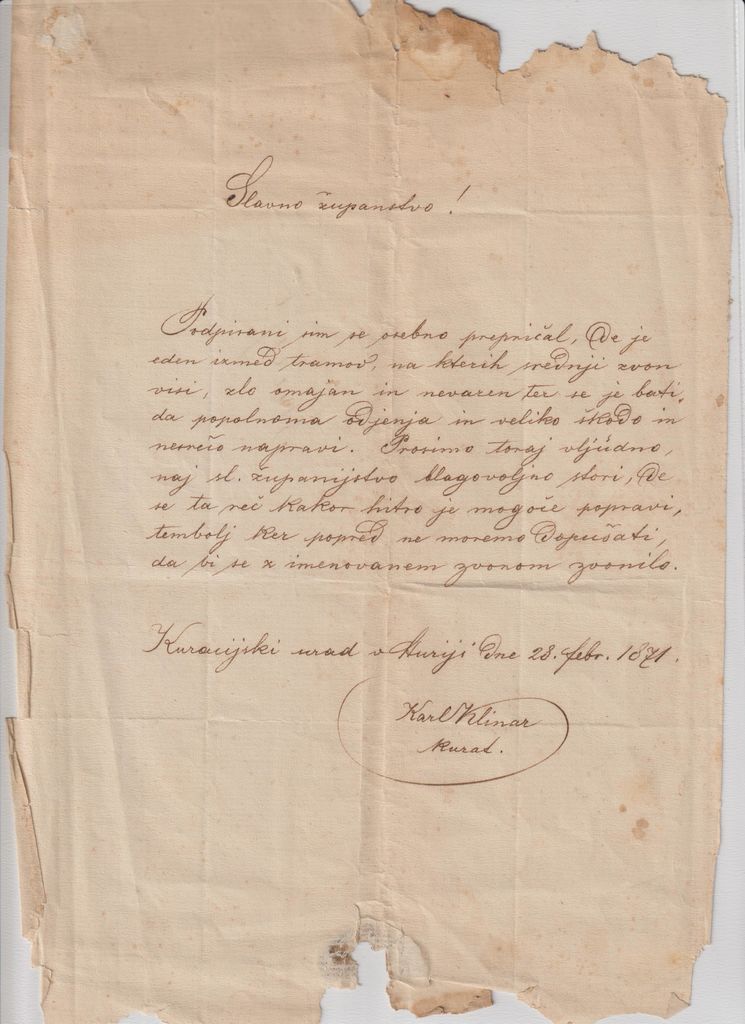 Slavno županstvo!
Podpisani sim se osebno prepričal, de je
eden izmed tramov, na kterih srednji zvon
visi, zlo omajan in nevaren ter se je bati,
da popolnoma odjenja in veliko škodo in
nesrečo napravi. Prosimo toraj vljúdno,
naj sl. županijstvo blagovoljno stori, de
se ta reč kakor hitro je mogoče popravi,
tembolj ker popred ne moremo dopušati,
da bi se z imenovanem zvonom zvonilo.
Kuracijski urad v Šturiji dne 28. febr. 1871.
Karl Klinar
kurat.